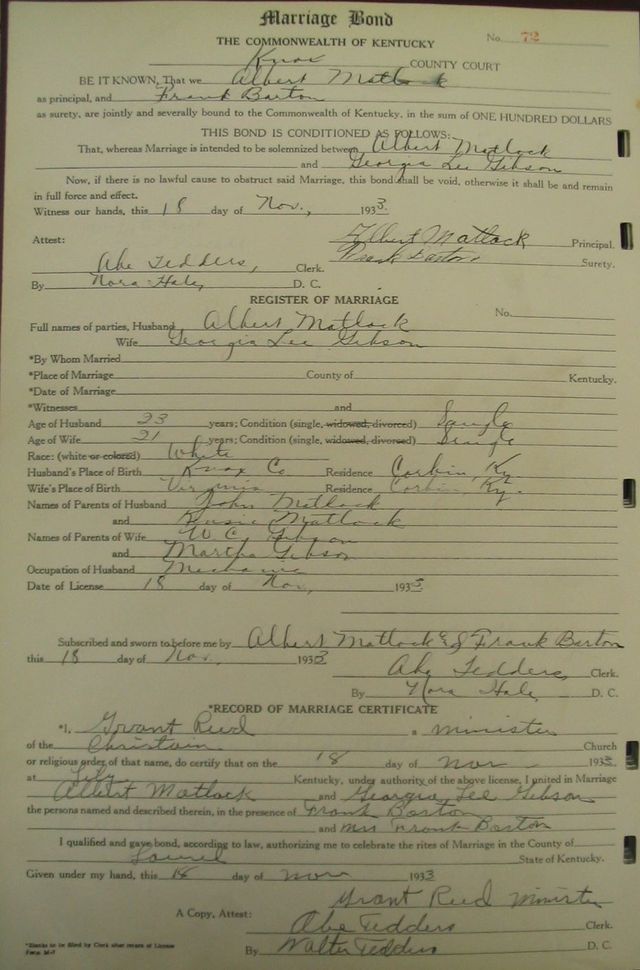 Marriage Bond
No. 72
THE COMMONWEALTH OF KENTUCKY
Knox COUNTY COURT
BE IT KNOWN, That we Albert Matlock
as principal, and Frank Barton
as surety, are jointly and severally bound to the Commonwealth of Kentucky, in the sum of ONE HUNDRED DOLLARS
THIS BOND IS CONDITIONED AS FOLLOWS:
That, whereas Marriage is intended to be solemnized between Albert Matlock
and Georgia Lee Gibson
Now, if there is no lawful cause to obstruct said Marriage, this bond shall be void, otherwise it shall be and remain
in full force and effect.
Witness our hands, this 18 day of Nov., 1933.
Attest: Albert Matlock Principal.
Frank Barton Surety.
Abe Tedders, Clerk.
By Nora Hale, D. C.
REGISTER OF MARRIAGE
No.
Full names of parties, Husband Albert Matlock
Wife Georgia Lee Gibson
*By Whom Married
*Place of Marriage County of Kentucky.
*Date of Marriage
*Witnesses and
Age of Husband 23 years; Condition (single, widowed, divorced) Single
Age of Wife 21 years; Condition (single, widowed, divorced) Single
Race: (white or colored) White
Husband's Place of Birth Knox Co Residence Corbin Ky.
Wife's Place of Birth Virginia Residence Corbin Ky.
Names of Parents of Husband John Matlock
and Matlock
Names of Parents of Wife W C Gibson
and Martha Gibson
Occupation of Husband Mechanic
Date of License 18 day of Nov, 1933
Subscribed and sworn to before me by Albert Matlock & Frank Barton
this 18 day of Nov. 1933
Abe Tedders, Clerk.
By Nora Hale, D. C.
*RECORD OF MARRIAGE CERTIFICATE
*I, Grant Reed a minister
of the Christain Church
or religious order of that name, do certify that on the 18 day of Nov 1933
at Lily Kentucky, under authority of the above license, I united in Marriage
Albert Matlock and Georgia Lee Gibson
the persons named and described therein, in the presence of Frank Barton
and Mrs Frank Barton
I qualified and gave bond, according to law, authorizing me to celebrate the rites of Marriage in the County of
Laurel State of Kentucky.
Given under my hand, this 18 day of Nov 1933
Grant Reed minister
A Copy, Attest: Abe Tedders Clerk.
By Walter Tedders D. C.
*Blanks to be filled by Clerk after return of License
Form M-1